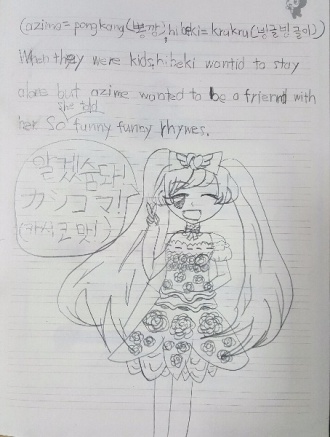 (azima=pongkang(뿡깡), hibeki=krukru(빙글빙글이)
When they were kids, hibeki wantid to stay
alone but azime wanted to be a friend with
she told
her so funny funny rhymes.
알겠숨돠!
カシコマ!
(카시코맛!)